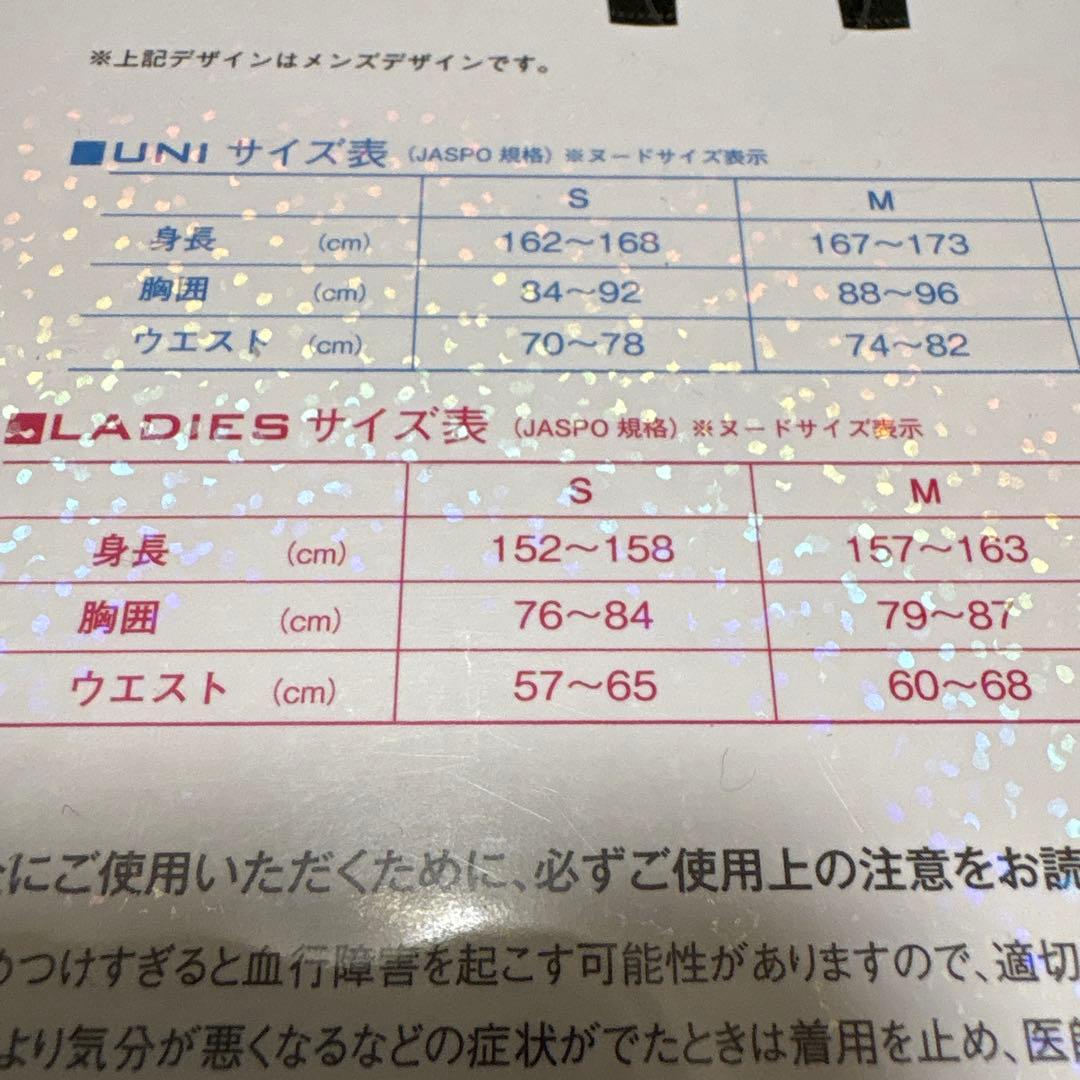 ※上記デザインはメンズデザインです。
■UNI サイズ表 (JASPO 規格) ※ヌードサイズ表示
S M
身長 (cm) 162〜168 167〜173
胸囲 (cm) 84〜92 88〜96
ウエスト (cm) 70〜78 74〜82
■LADIES サイズ表 (JASPO 規格) ※ヌードサイズ表示
S M
身長 (cm) 152〜158 157〜163
胸囲 (cm) 76〜84 79〜87
ウエスト (cm) 57〜65 60〜68
にご使用いただくために、必ずご使用上の注意をお読
めつけすぎると血行障害を起こす可能性がありますので、適切
より気分が悪くなるなどの症状がでたときは着用を止め、医師